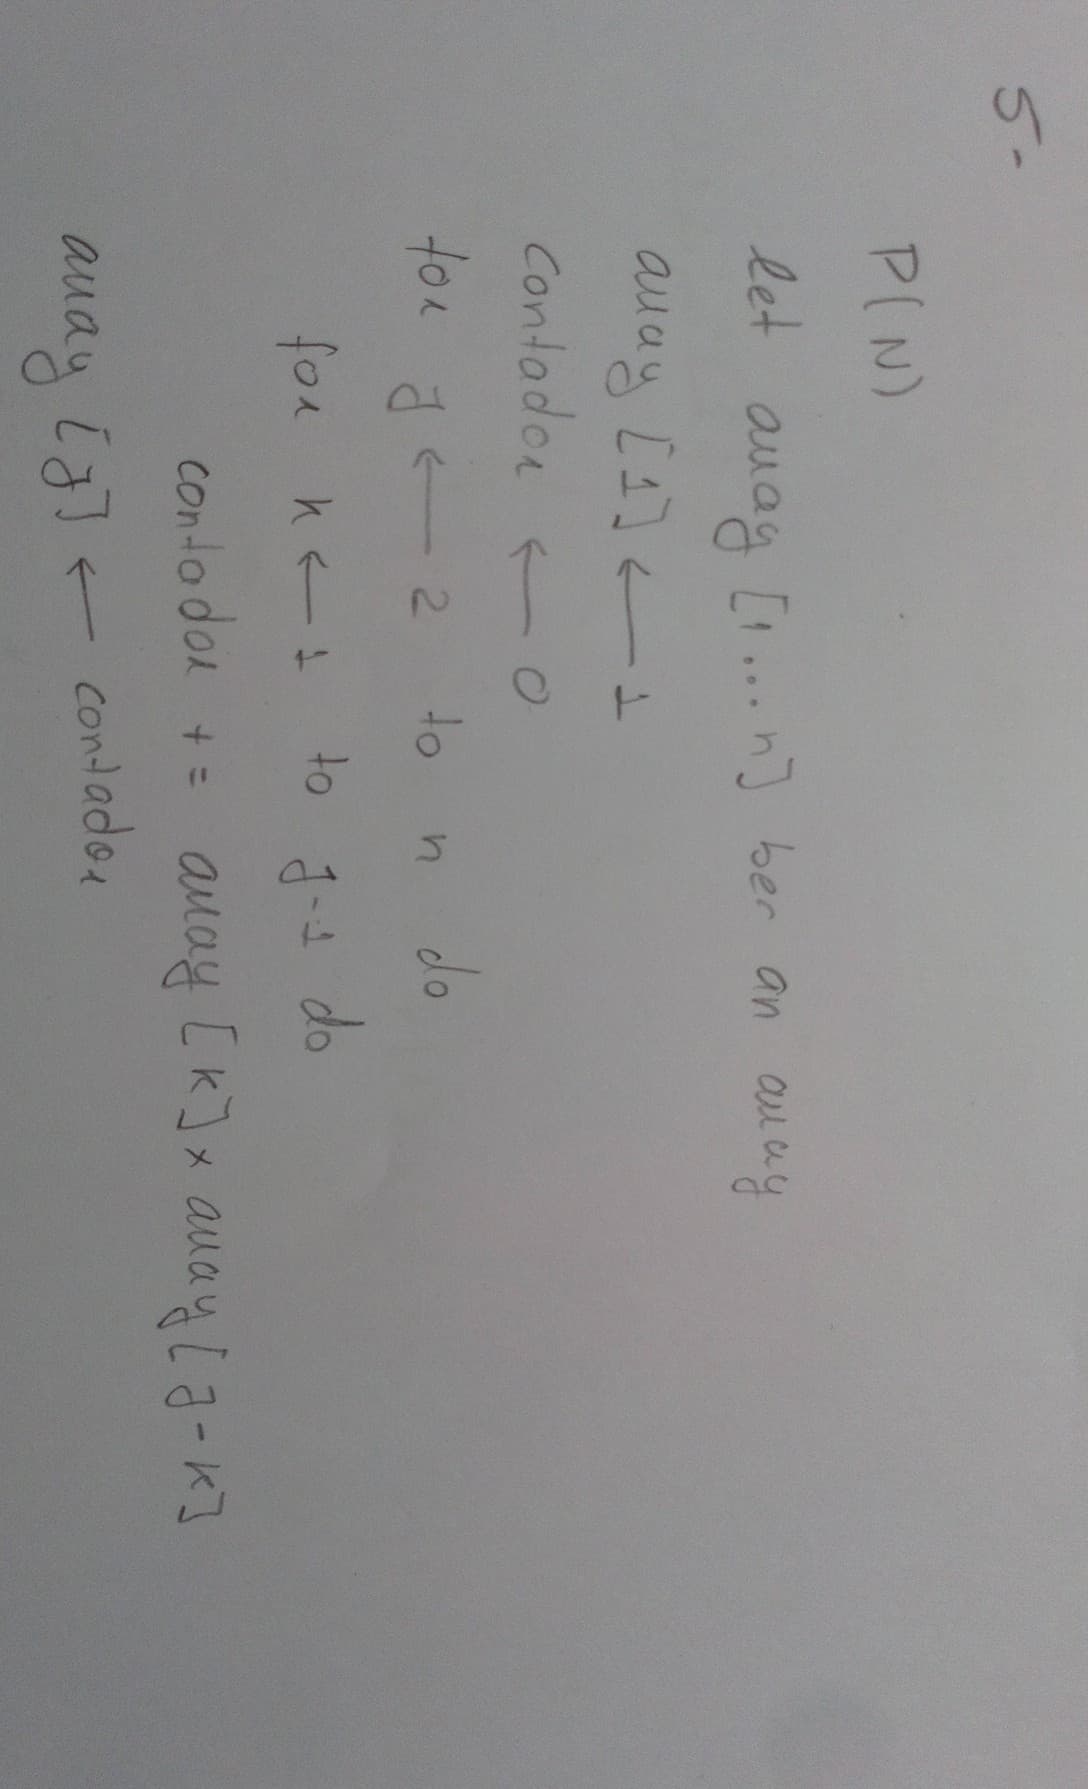 5-
P(N)
let array [1...n] ber an array
array [1] ← 1
Contador ← 0
for j ← 2 to n do
for k ← 1 to j-1 do
contador += array [k] x array [j-k]
array [j] ← contador